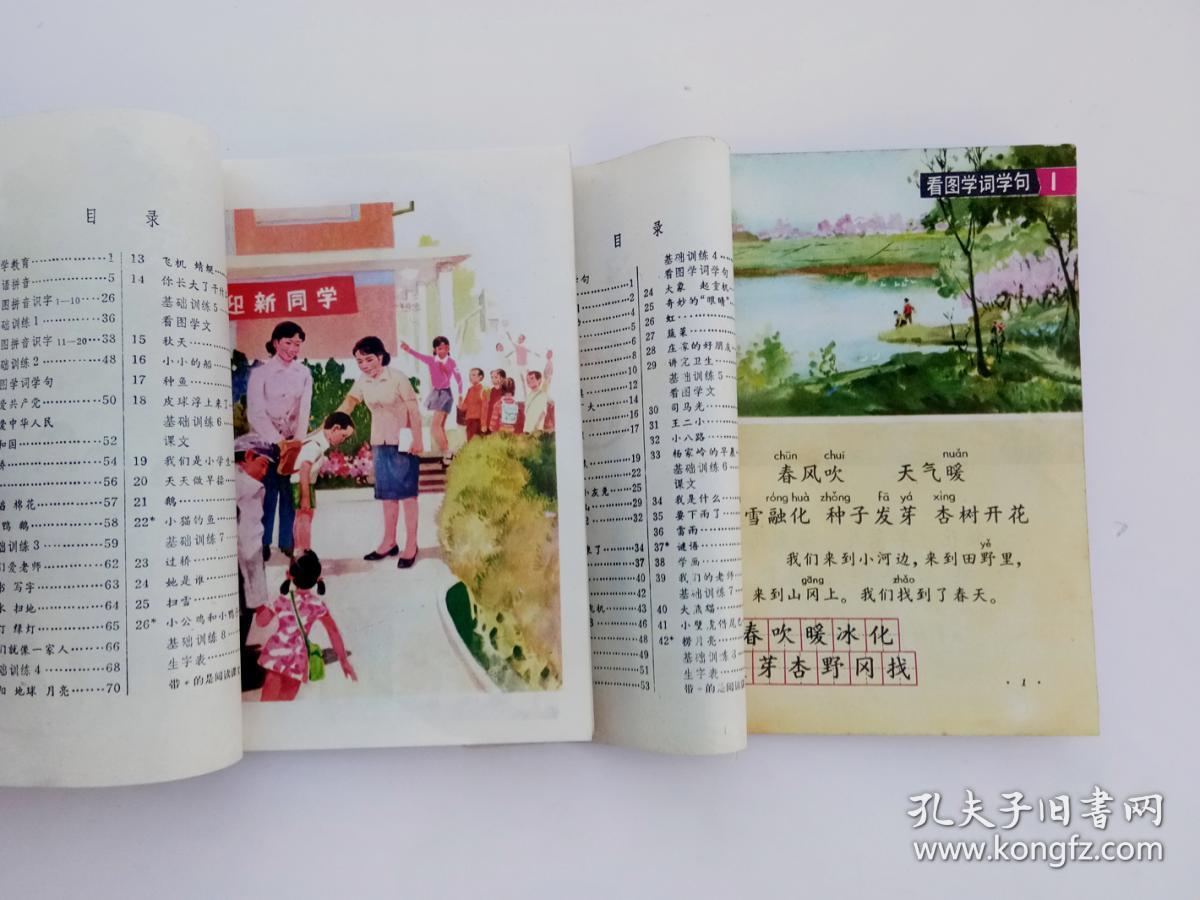 目 录
学教育……1
语拼音……5
图拼音识字1—10……26
础训练1……36
图拼音识字11—20……38
础训练2……48
图学词学句
爱共产党……50
爱中华人民
和国……52
桥……54
……56
稻 棉花……57
鸭 鹅……58
础训练3……59
们爱老师……62
书 写字……63
水 扫地……64
灯 绿灯……65
们就像一家人……66
础训练4……68
和 地球 月亮……70
13 飞机 蜻蜓
14 你长大了干什
基础训练5
看图学文
15 秋天
16 小小的船
17 种鱼
18 皮球浮上来了
基础训练6
课文
19 我们是小学生
20 天天做早操
21 鹅
22* 小猫钓鱼
基础训练7
23 过桥
24 她是谁
25 扫雪
26* 小公鸡和小鸭子
基础训练8
生字表
带*的是阅读课文
迎新同学
目 录
句……1
……2
……4
……5
……6
……8
……10
……12
大……14
……16
……17
……19
……22
小灰兔……25
山……29
……32
来了……34
……37
……40
……42
飞机……43
……46
……48
……49
……51
……53
基础训练4
看图学词学句
24 大象 起重机
25 奇妙的“眼睛”
26 虹
27 蔬菜
28 庄家的好朋友
29 讲究卫生
基础训练5
看图学文
30 司马光
31 王二小
32 小八路
33 杨家岭的早晨
基础训练6
课文
34 我是什么
35 要下雨了
36 雷雨
37* 谜语
38 学画
39 我们的老师
基础训练7
40 大熊猫
41 小壁虎借尾巴
42* 捞月亮
基础训练8
生字表
带*的是阅读课
看图学词学句 1
chūn chuī nuǎn
春风吹 天气暖
róng huà zhǒng fā yá xìng
雪融化 种子发芽 杏树开花
yě
我们来到小河边，来到田野里，
gāng zhǎo
来到山冈上。我们找到了春天。
春吹暖冰化
芽杏野冈找
·1·
孔夫子旧书网
www.kongfz.com